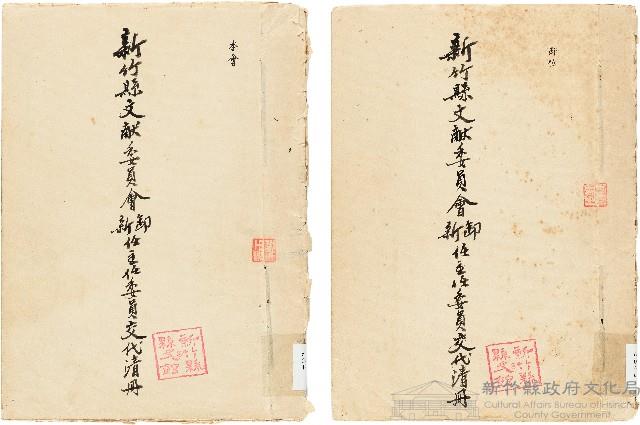 本會
新竹縣文献委員會卸新任主任委員交代清冊
新竹縣
縣史館
新竹縣文献委員會卸新任主任委員交代清冊
新竹縣
縣史館
新竹縣政府文化局
Cultural Affairs Bureau of Hsinchu
County Government